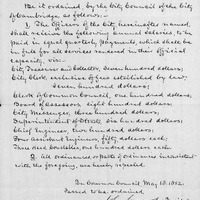 Be it ordained, by the City Council of the City
of Cambridge as follows:—
1. The Officers of the City hereinafter named,
shall receive the following annual salaries, to be
paid in equal quarterly payments, which shall be
in full for all services rendered in their official
capacity, viz:—
City Treasurer and Collector, Seven hundred dollars;
City Clerk, exclusive of fees established by law,
Seven hundred dollars;
Clerk of Common Council, one hundred dollars;
Board of Assessors, eight hundred dollars;
City Messenger, three hundred dollars;
Superintendent of Streets, six hundred dollars;
Chief Engineer, two hundred dollars;
Four Assistant Engineers, fifty dollars each;
two hundred dollars each.
2. All ordinances or parts of ordinances inconsistent
with the foregoing, are hereby repealed.
In Common Council, May 13, 1852.
Passed to be ordained,